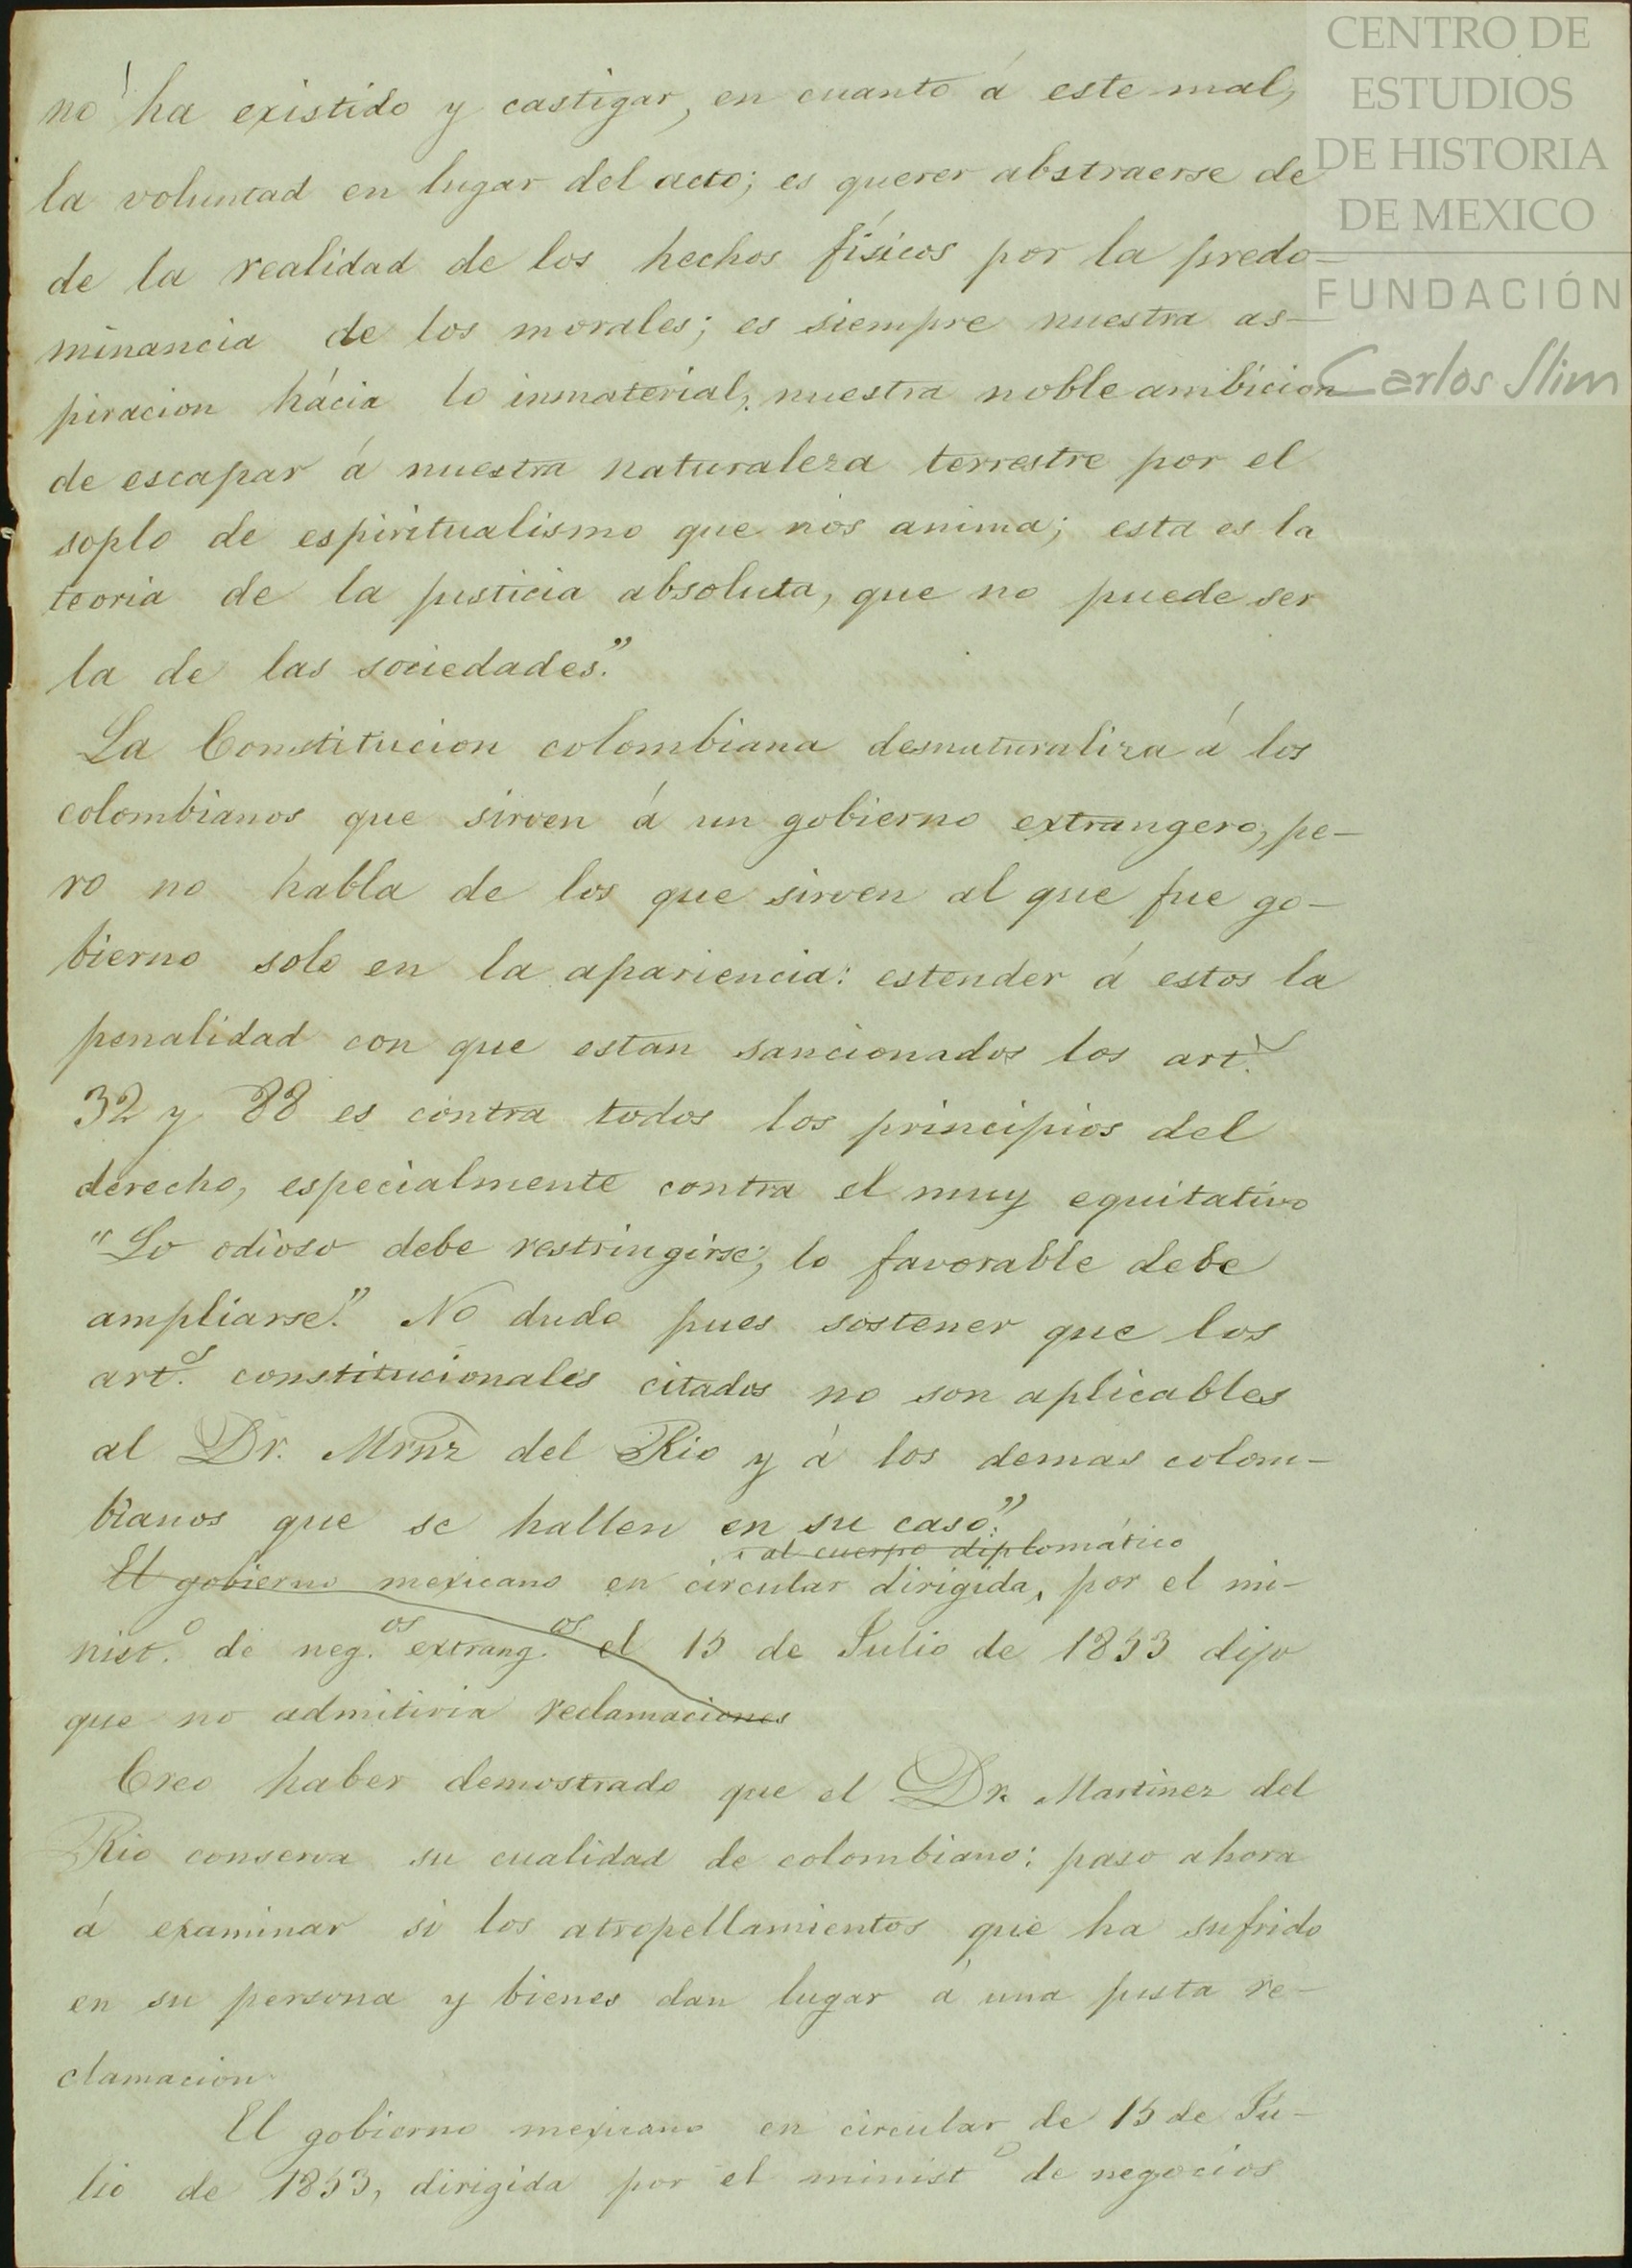 CENTRO DE
ESTUDIOS
DE HISTORIA
DE MEXICO
FUNDACIÓN
Carlos Slim
no ha existido y castigar, en cuanto á este mal,
la voluntad en lugar del acto; es querer abstraerse de
de la realidad de los hechos físicos por la predo-
minancia de los morales; es siempre nuestra as-
piracion hácia lo inmaterial; nuestra noble ambicion
de escapar á nuestra naturaleza terrestre por el
soplo de espiritualismo que nos anima; esta es la
teoria de la justicia absoluta, que no puede ser
la de las sociedades."
La Constitucion colombiana desnaturaliza á los
colombianos que sirven á un gobierno extrangero, pe-
ro no habla de los que sirven al que fue go-
bierno solo en la apariencia: estender á estos la
penalidad con que estan sancionados los art.s
32 y 88 es contra todos los principios del
derecho, especialmente contra el muy equitativo
"Lo odioso debe restringirse; lo favorable debe
ampliarse." No dudo pues sostener que los
art.s constitucionales citados no son aplicables
al Dr. Mrnz del Rio y á los demas colom-
bianos que se hallen en su caso."
al cuerpo diplomático
El gobierno mexicano en circular dirigida, por el mi-
nist.o de neg.os extrang.os el 15 de Julio de 1853 dijo
que no admitiria reclamaciones
Creo haber demostrado que el Dr. Martinez del
Rio conserva su cualidad de colombiano: paso ahora
á examinar si los atropellamientos que ha sufrido
en su persona y bienes dan lugar á una justa re-
clamacion.
El gobierno mejicano en circular de 15 de Ju-
lio de 1853, dirigida por el minist.o de negocios